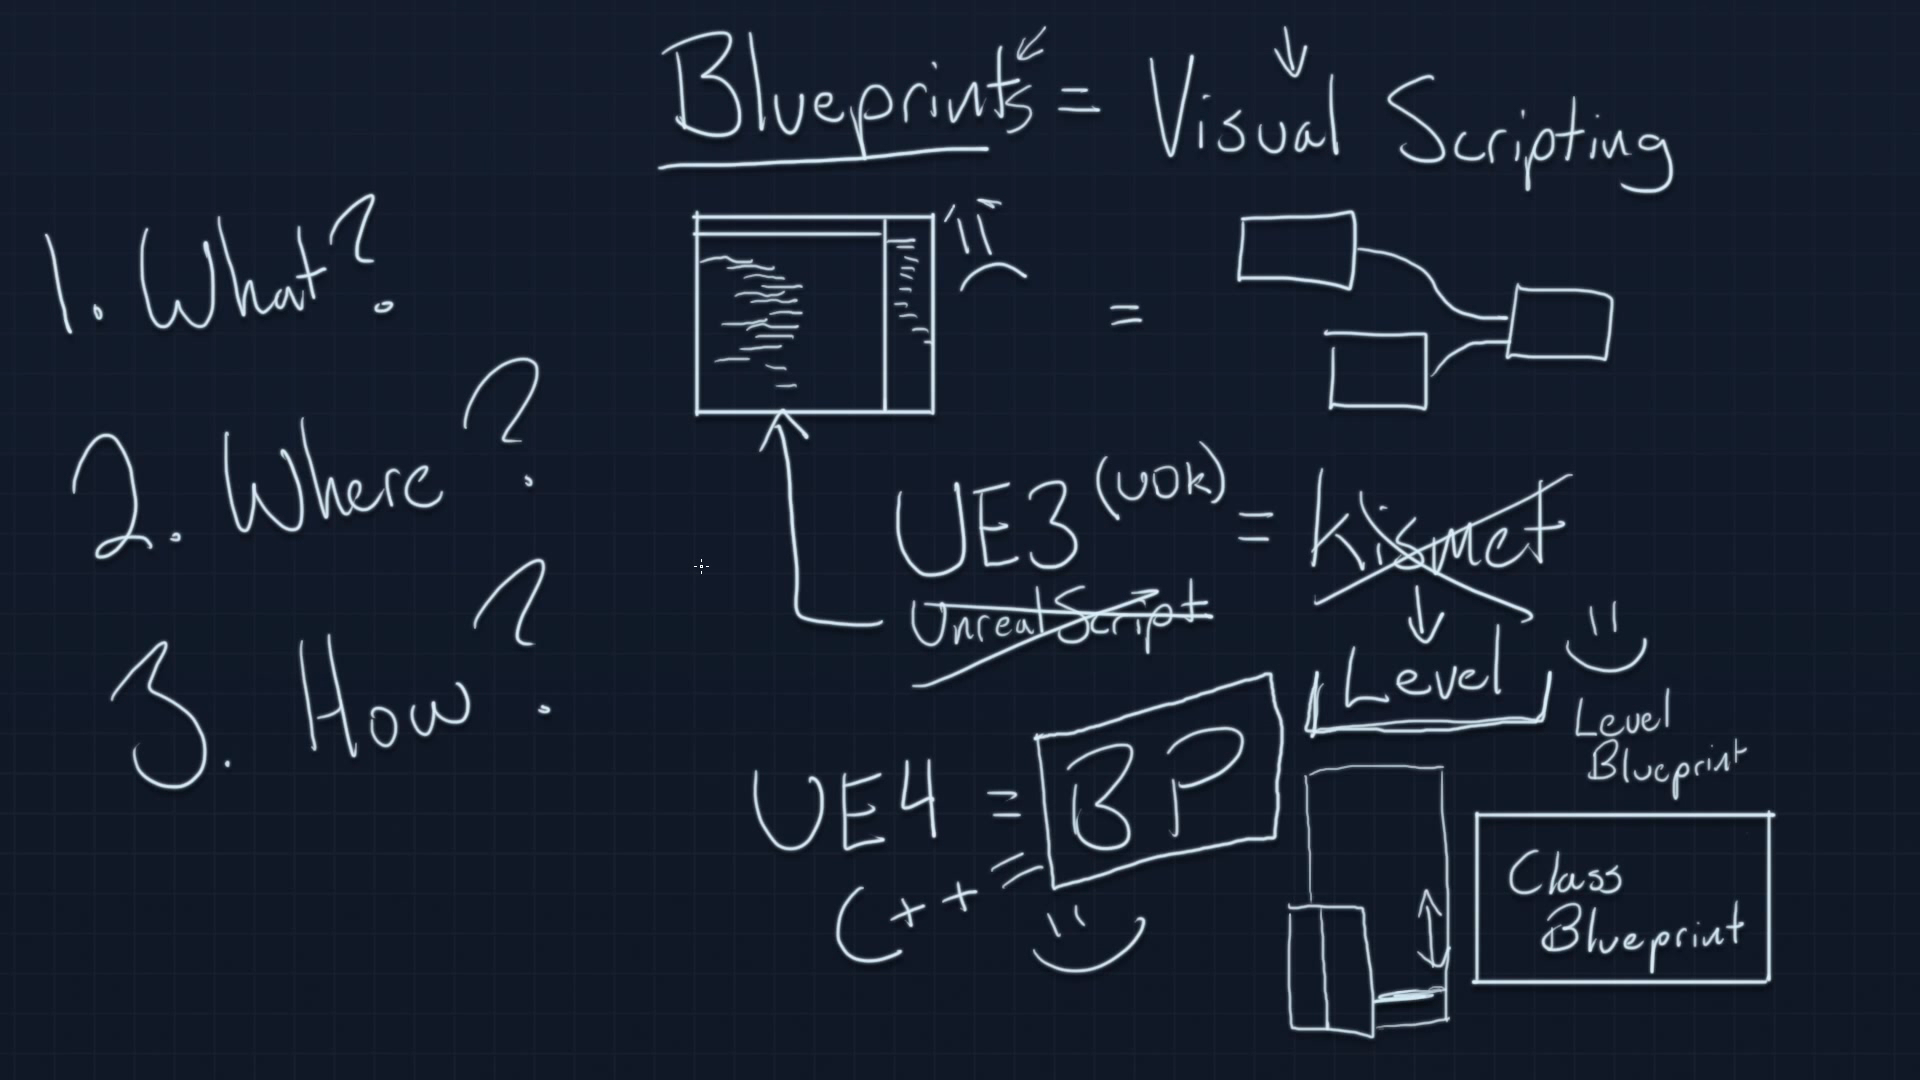 Blueprints = Visual Scripting
1. What?
2. Where?
3. How?
=
UE3 (UDK) = Kismet
UnrealScript
Level
Level
Blueprint
UE4 = BP
C++ =
Class
Blueprint